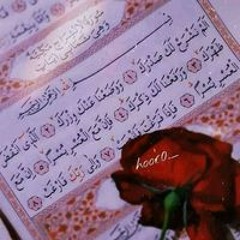 سورة الانشراح مكية
بِسْمِ اللَّهِ الرَّحْمَٰنِ الرَّحِيمِ
أَلَمْ نَشْرَحْ لَكَ صَدْرَكَ ١ وَوَضَعْنَا عَنكَ وِزْرَكَ ٢ الَّذِي أَنقَضَ
ظَهْرَكَ ٣ وَرَفَعْنَا لَكَ ذِكْرَكَ ٤ فَإِنَّ مَعَ الْعُسْرِ يُسْرًا ٥ إِنَّ مَعَ
الْعُسْرِ يُسْرًا ٦ فَإِذَا فَرَغْتَ فَانصَبْ ٧ وَإِلَىٰ رَبِّكَ فَارْغَب ٨
hooro._